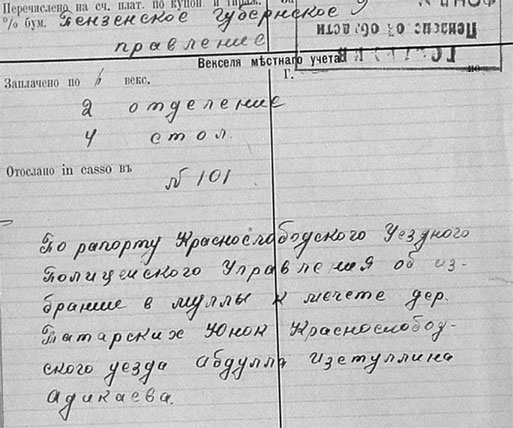 Перечислено на сч. плат. по купон. и тираж.
% бум. Пензенское Губернское
правление
Пензенской области
Векселя мѣстнаго учета
Г. по
Заплачено по векс.
2 отделение
4 стол.
Отослано in casso въ
№ 101
По рапорту Краснослободского Уездного
Полицейского Управления об из-
брание в муллы к мечете дер.
Татарских Юнок Краснослобод-
ского уезда Абдулла Изетуллина
Адикаева.